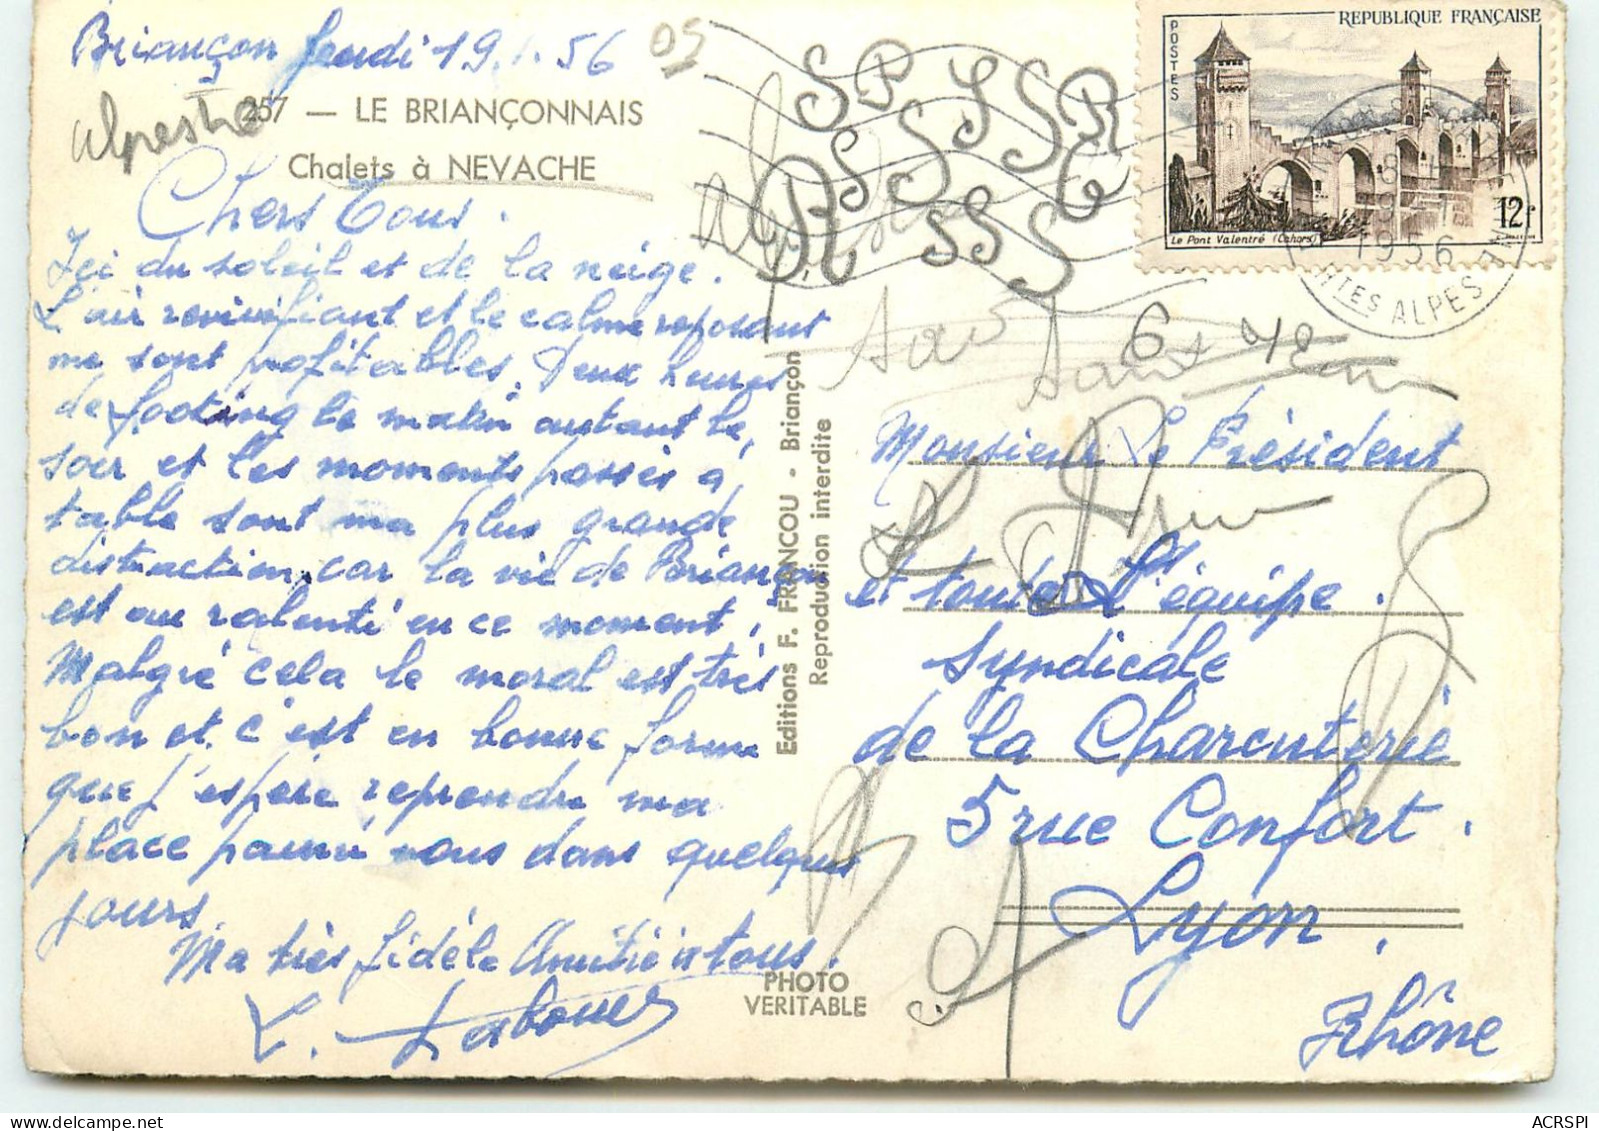 Briançon Jeudi 19.1.56
05
alpestre
257 — LE BRIANÇONNAIS
Chalets à NEVACHE
Chers Tous.
Ici du soleil et de la neige.
L'air revivifiant et le calme reposant
me sont profitables. Deux heures
de footing le matin autant le
soir et les moments passés à
table sont ma plus grande
distraction, car la vie de Briançon
est au ralenti en ce moment,
Malgré cela le moral est très
bon et c'est en bonne forme
que j'espère reprendre ma
place parmi vous dans quelques
jours
Ma très fidèle Amitié à tous.
Editions F. FRANCOU - Briançon
Reproduction interdite
PHOTO
VERITABLE
POSTES
REPUBLIQUE FRANÇAISE
Le Pont Valentré (Cahors)
12f
1956
HTES ALPES
Monsieur Le Président
et toute l'équipe.
Syndicale
de la Charcuterie
5 rue Confort.
Lyon.
Rhône
ACRSPI